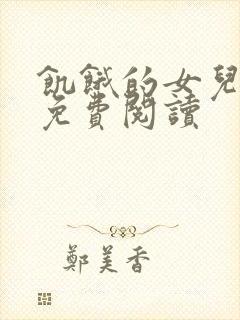 飢餓的女兒
免費閱讀
鄭美香